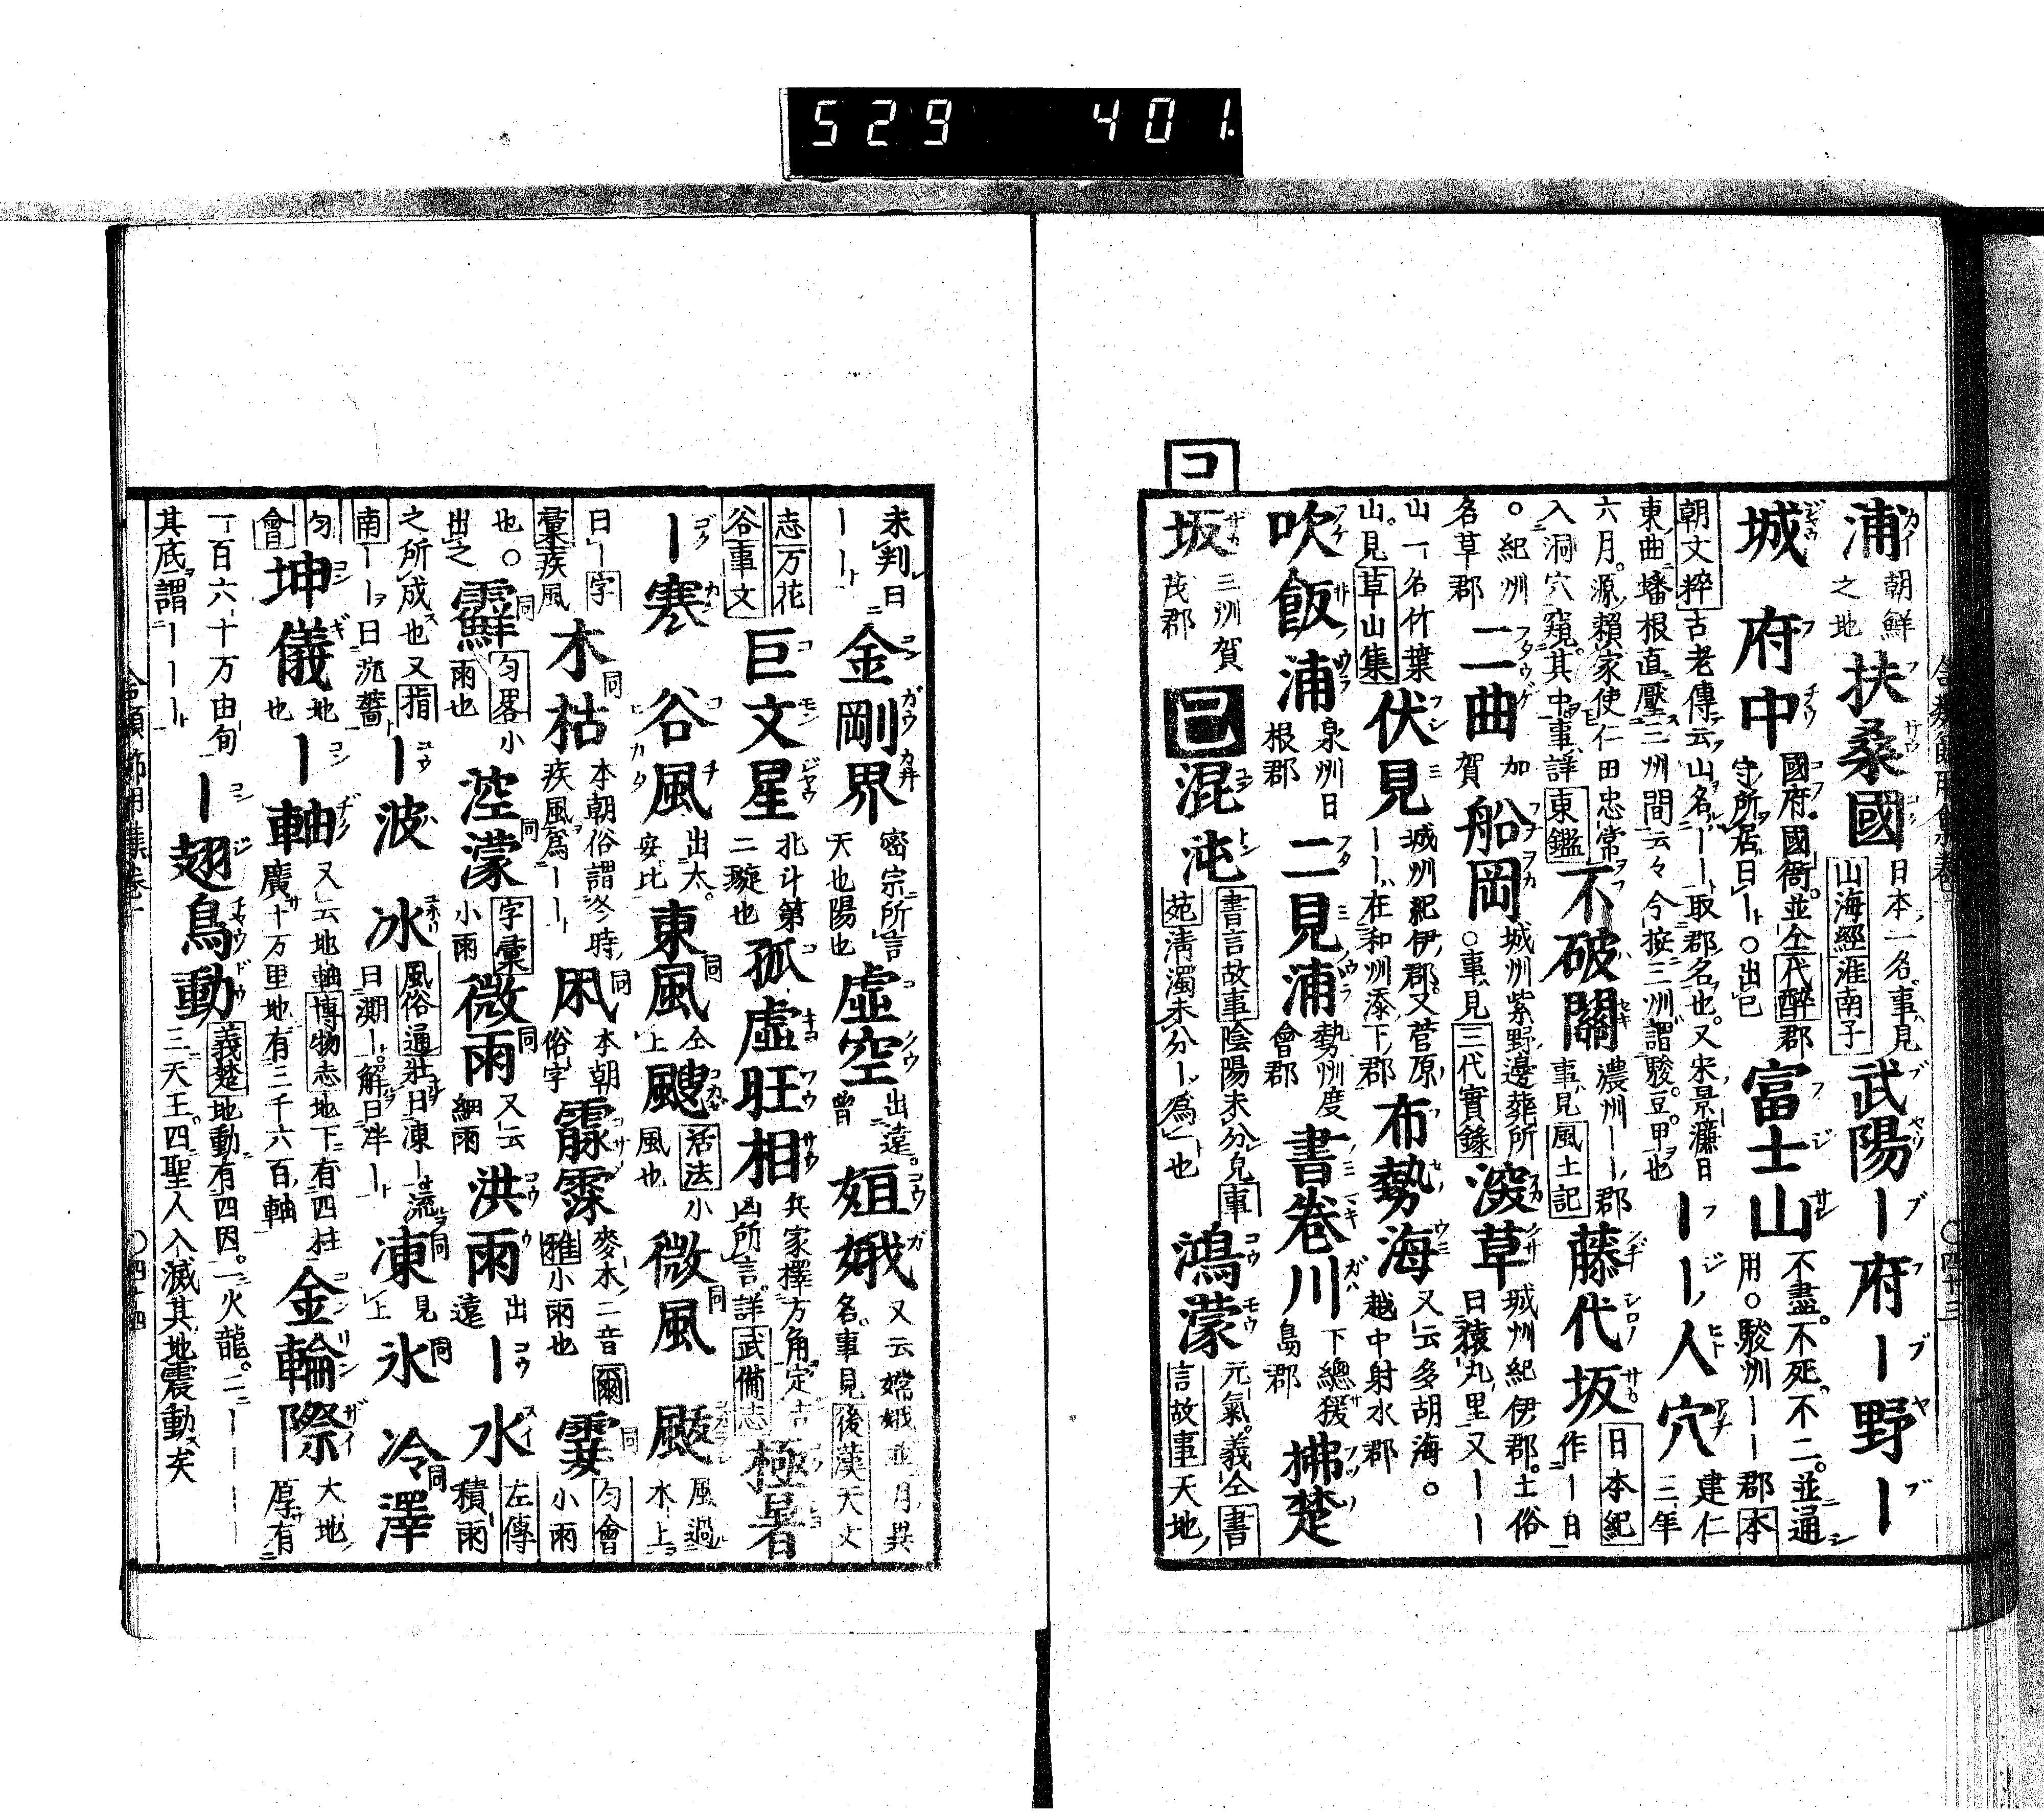 529 401
浦 朝鮮之地 扶桑國 日本一名事見山海經淮南子 武陽 ー府 ー野 ー
城 府中 國府國衙並仝代醉郡守所居曰ー○出巳 富士山 不盡不死不二並通用○駿州ーー郡本
朝文粹古老傳云山名ーー取郡名也又宋景濂曰 ーー人穴 建仁三年
東曲蟠根直壓三州間云々今按三洲謂駿豆甲也
六月源賴家使仁田忠常 不破關 濃州ーー郡事見風土記 藤代坂 日本紀作ー白
入洞穴窺其中事詳東鑑
○紀州名草郡 二曲 加賀 船岡 城州紫野邊葬所○事見三代實錄 深草 城州紀伊郡土俗曰猿丸里又ーー
山一名竹葉山見草山集 伏見 城州紀伊郡又菅原ーー在和州添下郡 布勢海 又云多胡海○越中射水郡
吹飯浦 泉州日根郡 二見浦 勢州度會郡 書卷川 下總猨島郡 拂楚
コ
坂 三州賀茂郡 コ 混沌 書言故事陰陽未分見事苑清濁未分ー爲也 鴻蒙 元氣義仝書言故事天地
未判曰ーー 金剛界 密宗所言天也陽也 虛空 出遠曾 姮娥 又云嫦娥並月異名事見後漢天文
志万花谷事文 巨文星 北斗第二璇也 孤虛旺相 兵家擇方角定吉凶所言詳武備志 極暑
ー寒 谷風 出太安比 東風 仝上 颼 活法小風也 微風 同 颷 風過木上
曰ー字彙疾風 木枯 本朝俗謂冬時疾風爲ーー 凩 本朝俗字 霢霂 麥木二音爾雅小雨也 霎 勻會小雨
也○出之 霹 勻畧小雨也 涳濛 字彙小雨 微雨 又云細雨 洪雨 出遠 ー水 左傳積雨
之所成也又指南ーー曰沉薔 ー波 冰 風俗通壯曰凍ー流曰澌ー解曰泮ー 凍 見上 氷 同 冷澤 同
勻會 坤儀 地也 ー軸 又云地軸博物志地下有四柱廣十万里地有三千六百軸 金輪際 大地厚有
一百六十万由旬其底謂ーーー ー翅鳥動 義楚地動有四因一火龍二ーーー三天王四聖人入滅其地震動矣
合類節用集卷一
○四十三
○四十四